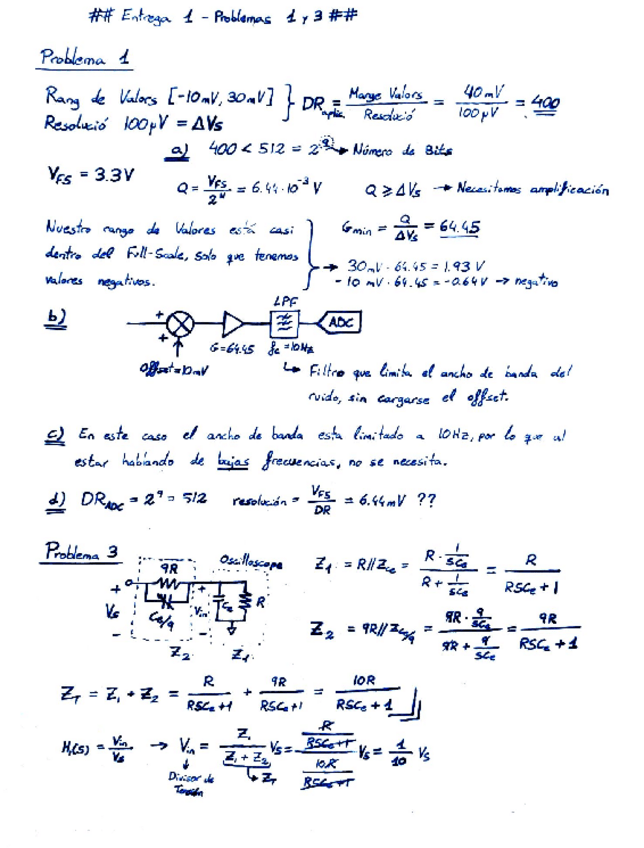 ## Entrega 1 - Problemas 1 y 3 ##
Problema 1
Rang de Valors [-10mV, 30mV] } DR aplic. = Marge Valors / Resolució = 40mV / 100µV = 400
Resolució 100µV = ΔVs
a) 400 < 512 = 2^9 → Número de Bits
VFS = 3.3V
Q = VFS / 2^N = 6.44·10^-3 V
Q ≥ ΔVs → Necesitamos amplificación
Nuestro rango de Valores está casi
dentro del Full-Scale, solo que tenemos
valores negativos.
Gmin = Q / ΔVs = 64.45
→ 30mV · 64.45 = 1.93 V
- 10 mV · 64.45 = -0.64V → negativo
b)
+
+
Offset=10mV
G=64.45
LPF
fc=10Hz
ADC
↳ Filtro que limita el ancho de banda del
ruido, sin cargarse el offset.
c) En este caso el ancho de banda esta limitado a 10Hz, por lo que al
estar hablando de bajas frecuencias, no se necesita.
d) DR ADC = 2^9 = 512 resolución = VFS / DR = 6.44mV ??
Problema 3
9R
Oscilloscope
+
Vs
-
Ce/9
+
Vin
-
Ce
R
Z2
Z1
Z1 = R//Zce = (R · 1/SCe) / (R + 1/SCe) = R / (RSCe+1)
Z2 = 9R//Zce/9 = (9R · 9/SCe) / (9R + 9/SCe) = 9R / (RSCe+1)
ZT = Z1 + Z2 = R / (RSCe+1) + 9R / (RSCe+1) = 10R / (RSCe+1)
H1(S) = Vin / Vs → Vin = Z1 / (Z1 + Z2) Vs = (R / (RSCe+1)) / (10R / (RSCe+1)) Vs = 1/10 Vs
↓ Divisor de
Tensión
→ ZT